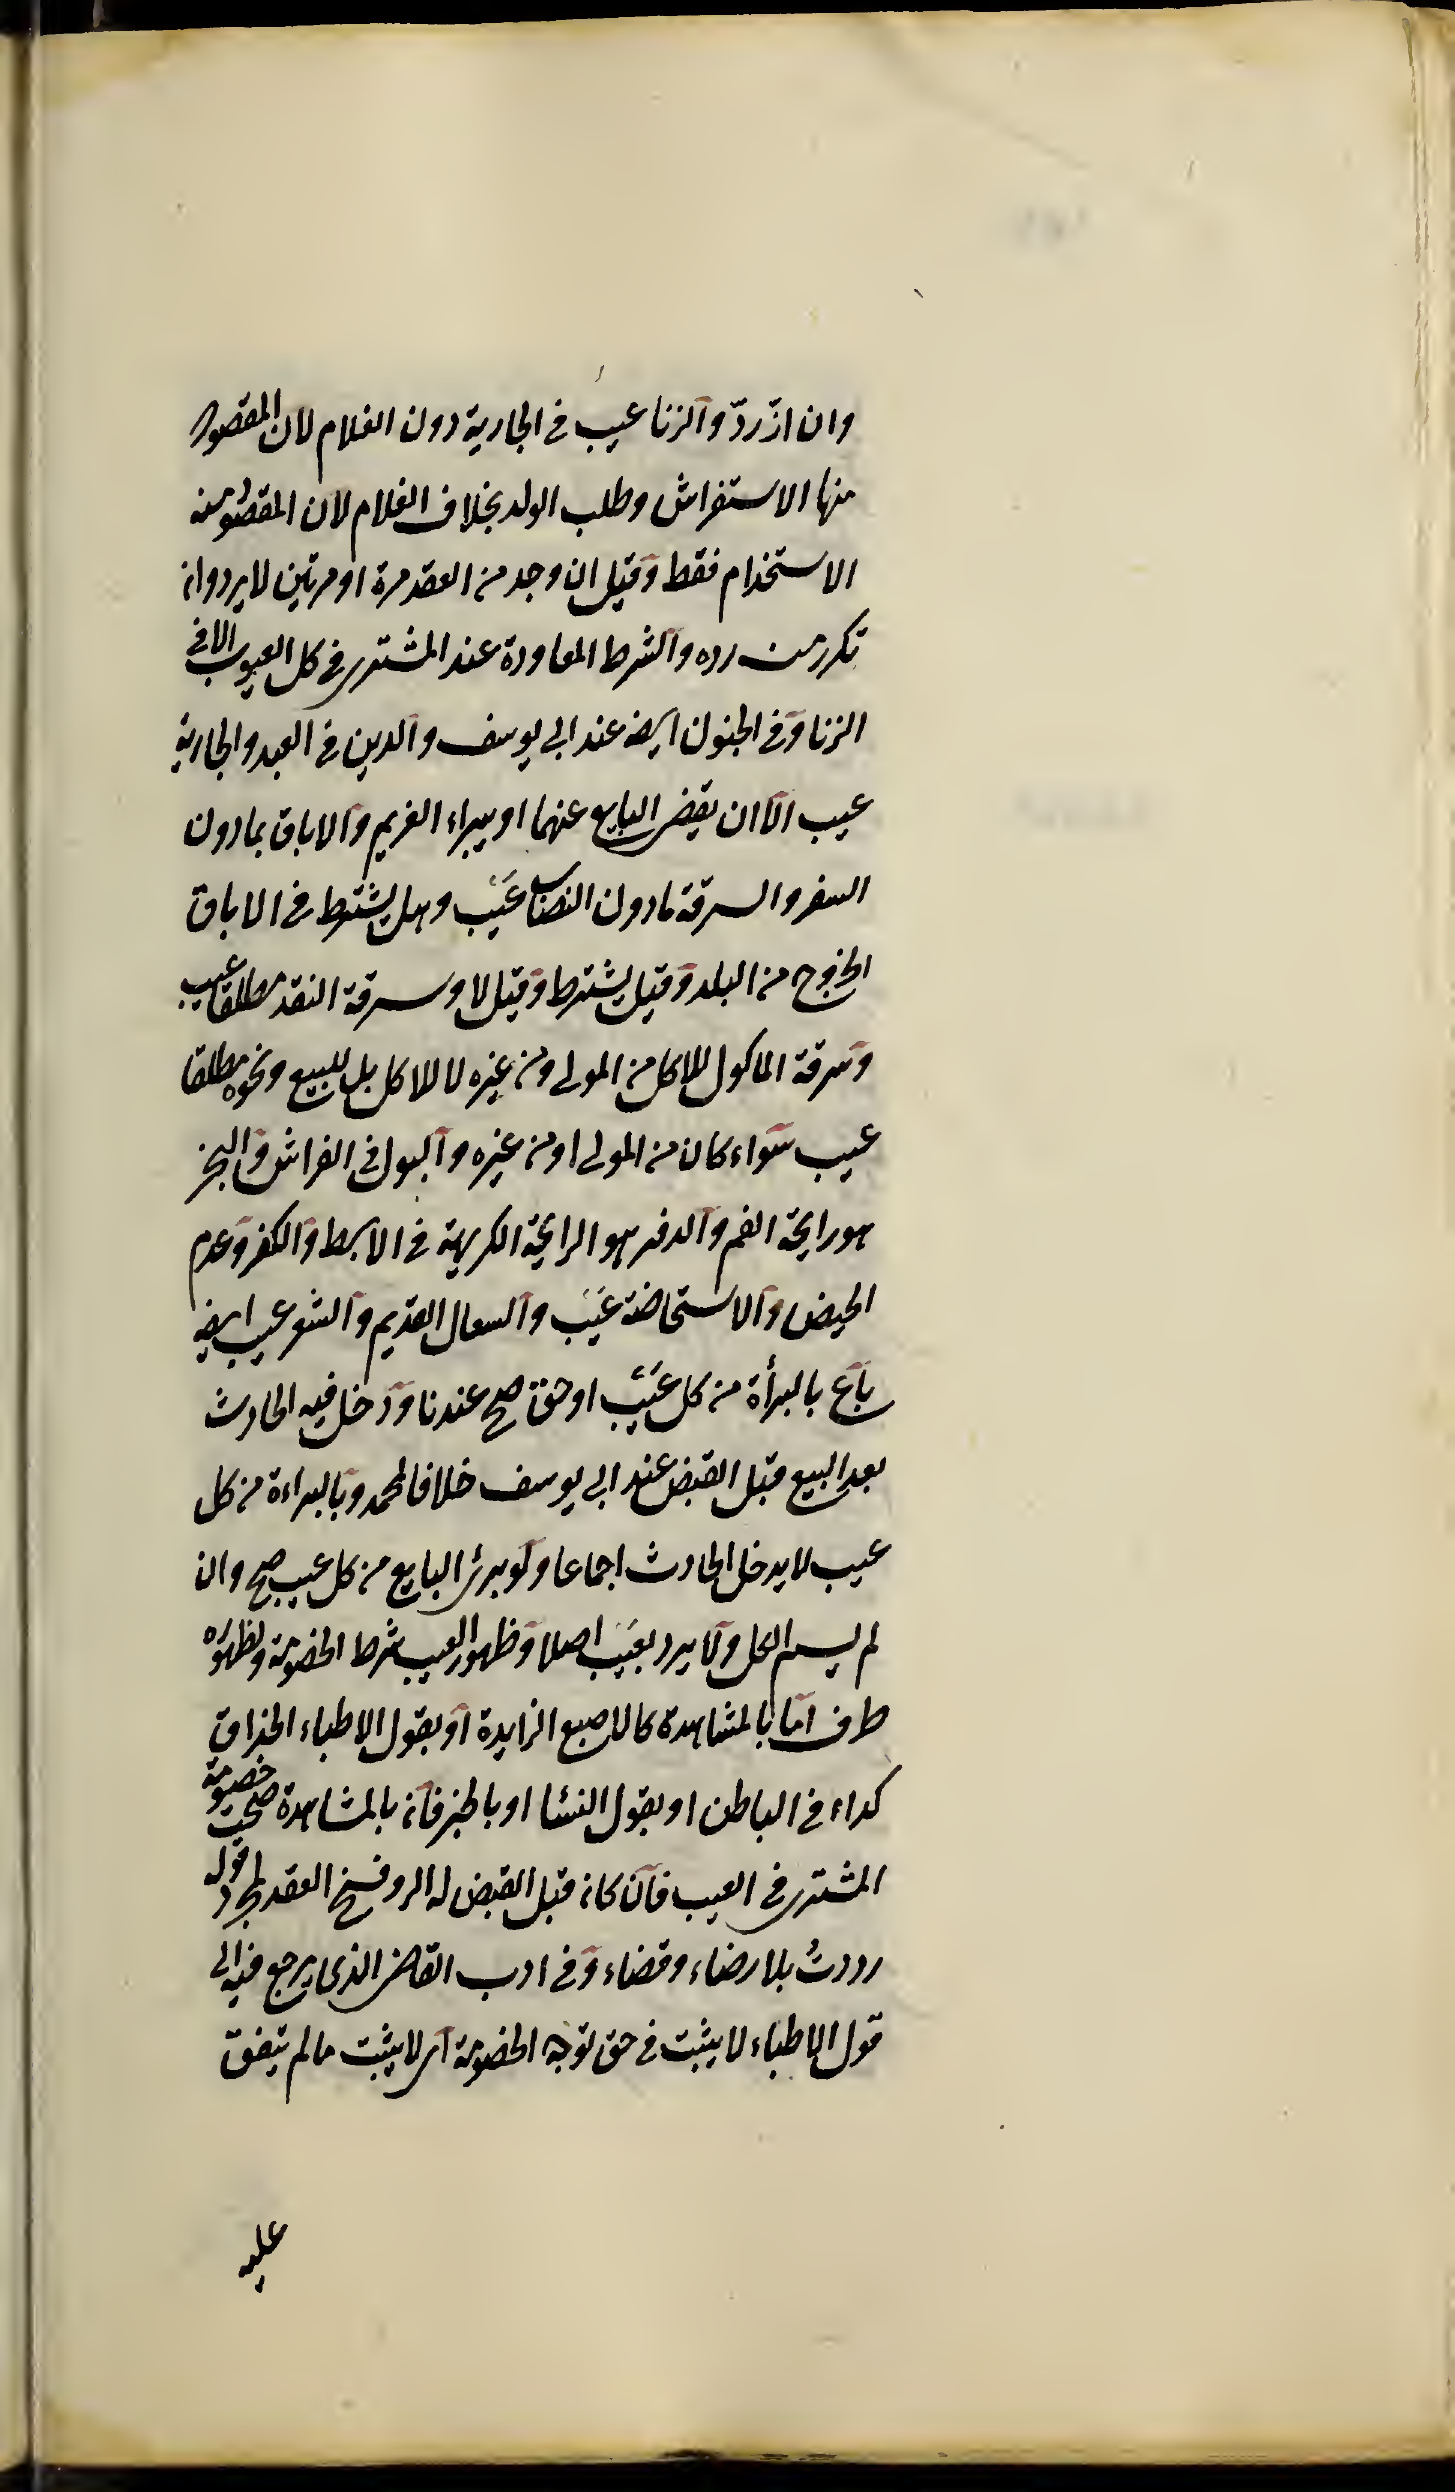 وان ازّ ردّ والزنا عيب في الجارية دون الغلام لان المقصود
منها الاستفراش وطلب الولد بخلاف الغلام لان المقصود منه
الاستخدام فقط وقيل ان وجد من العقد مرة او مرتين لا يرد وان
تكرر من رده والشرط المعاودة عند المشترى في كل العيوب الا في
الزنا وفي الجنون ايضه عند ابي يوسف والدين في العبد والجارية
عيب الا ان يقضى البايع عنهما او يبراء الغريم والاباق بما دون
السفر والسرقة ما دون النصاب عيب وهل يشترط في الاباق
الخروج من البلد وقيل يشترط وقيل لا وسرقة النقد مطلقا عيب
وسرقة الماكول للاكل من المولى ومن غيره لا للاكل بل للبيع ونحوه مطلقا
عيب سواء كان من المولى او من غيره والبول في الفراش والبخر
هو رايحة الفم والدفر هو الرايحة الكريهة في الابط والكفر وعدم
الحيض والاستحاضة عيب والسعال القديم والشعر عيب ايضه
باع بالبرأة من كل عيب او حق صح عندنا ودخل فيه الحادث
بعد البيع قبل القبض عند ابي يوسف خلافا لمحمد وبالبراءة من كل
عيب لا يدخل الحادث اجماعا ولو برئ البايع من كل عيب صح وان
لم يسم الكل ولا يرد بعيب اصلا وظهور العيب شرط الخصومة ولظهوره
طرف اما بالمشاهدة كالاصبع الزايدة او بقول الاطباء الحذاق
كداء في الباطن او بقول النسٔا او بالخبر فان بالمشاهدة صحت خصومة
المشترى في العيب فان كان قبل القبض له الرد وفسخ العقد بمجرد قوله
رددتُ بلا رضاء وقضاء وفي ادب القاضى الذى يرجع فيه الى
قول الاطباء لا يثبت في حق توجه الخصومة اى لا يثبت ما لم يتفق
عليه